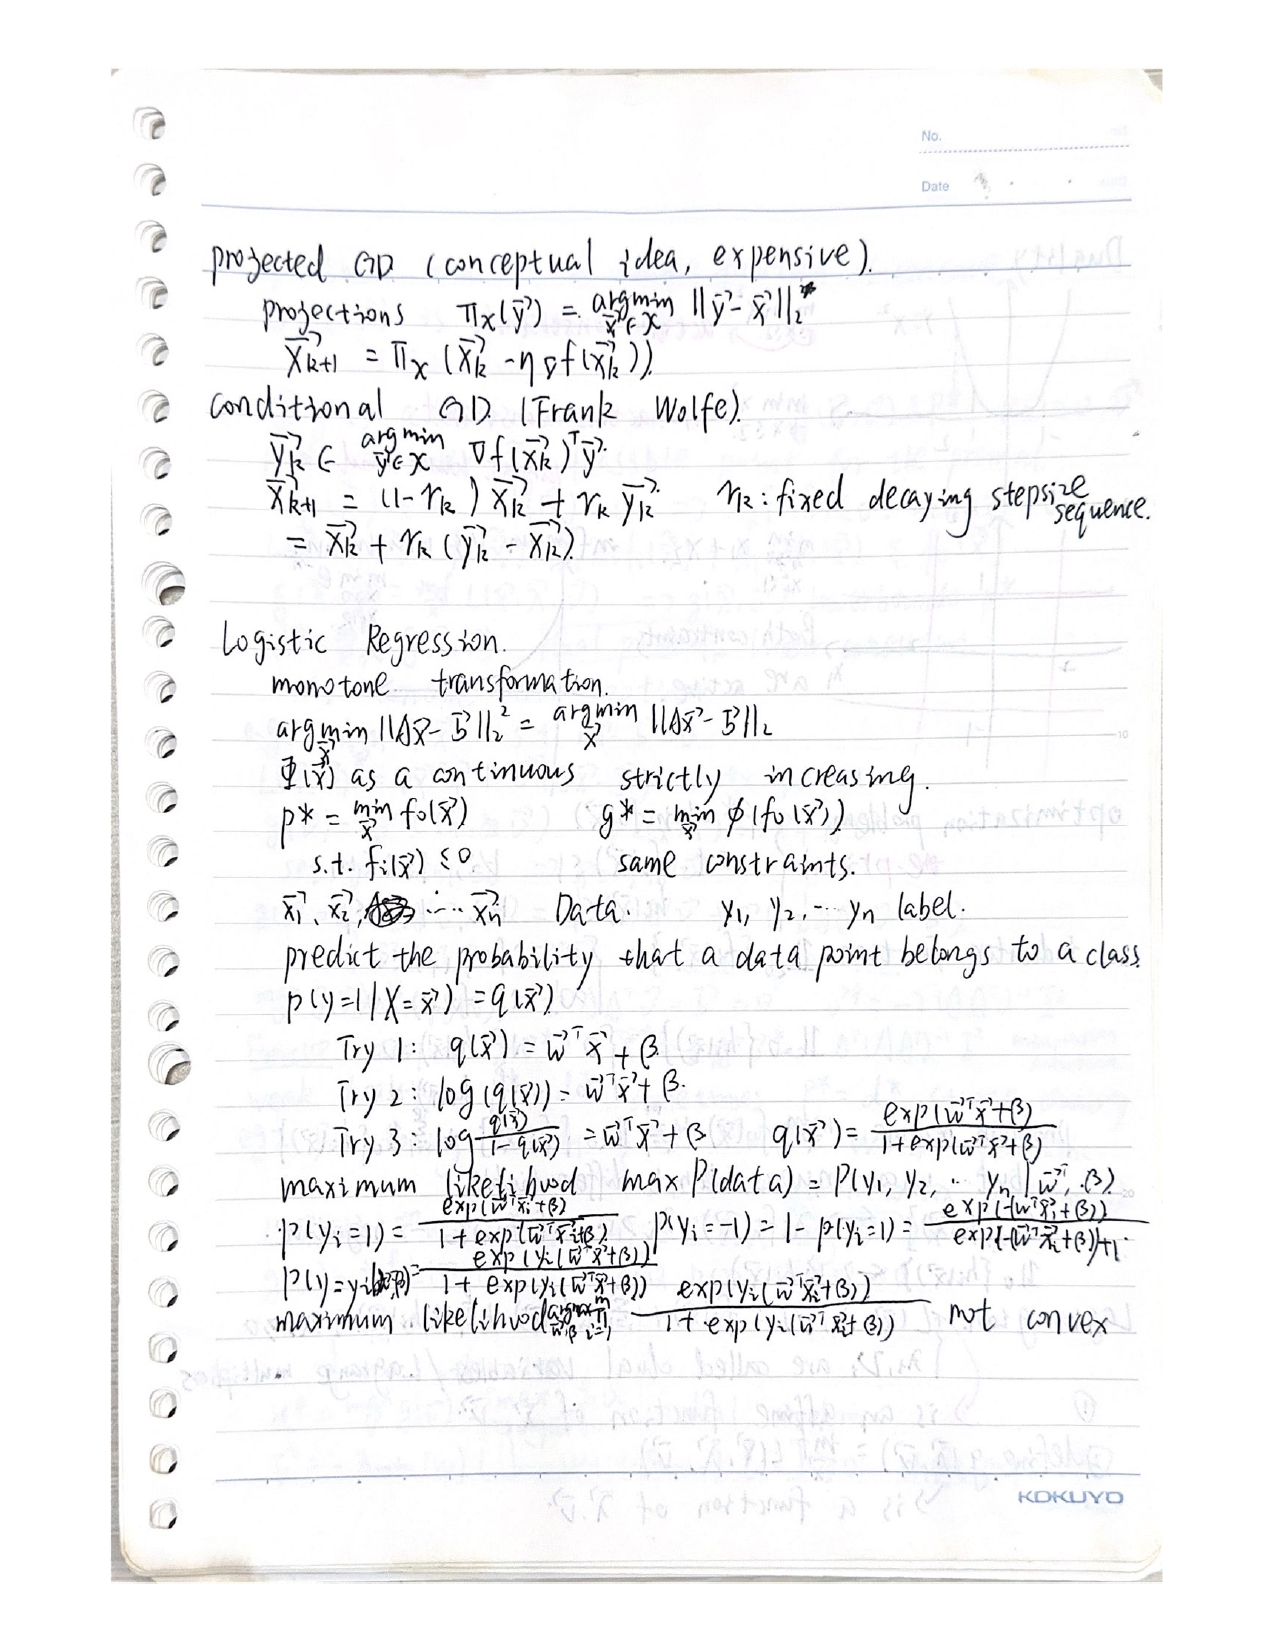 No.
Date
projected GD (conceptual idea, expensive).
projections Π_X(y⃗) = argmin_{x⃗∈X} ||y⃗ - x⃗||₂
x⃗_{k+1} = Π_X (x⃗_k - η∇f(x⃗_k)).
conditional GD. (Frank Wolfe).
y⃗_k ∈ argmin_{y⃗∈X} ∇f(x⃗_k)^T y⃗.
x⃗_{k+1} = (1-r_k) x⃗_k + r_k y⃗_k. r_k: fixed decaying stepsize sequence.
= x⃗_k + r_k (y⃗_k - x⃗_k).
Logistic Regression.
monotone transformation.
argmin_{x⃗} ||Ax⃗ - b⃗||₂² = argmin_{x⃗} ||Ax⃗ - b⃗||₂
Φ(x⃗) as a continuous strictly increasing.
p* = min_{x⃗} f₀(x⃗) g* = min_{x⃗} ϕ(f₀(x⃗)).
s.t. f_i(x⃗) ≤ 0 same constraints.
x⃗₁, x⃗₂, ... x⃗_n Data. y₁, y₂, ... y_n label.
predict the probability that a data point belongs to a class.
p(y=1|X=x⃗) = q(x⃗)
Try 1: q(x⃗) = w⃗^T x⃗ + β.
Try 2: log(q(x⃗)) = w⃗^T x⃗ + β.
Try 3: log q(x⃗)/(1-q(x⃗)) = w⃗^T x⃗ + β q(x⃗) = exp(w⃗^T x⃗+β)/(1+exp(w⃗^T x⃗+β))
maximum likelihood max P(data) = P(y₁, y₂, ... y_n | w⃗^T, β).
p(y_i=1) = exp(w⃗^T x⃗_i+β)/(1+exp(w⃗^T x⃗_i+β)). p(y_i=-1) = 1 - p(y_i=1) = exp(-(w⃗^T x⃗_i+β))/(exp(-(w⃗^T x⃗_i+β))+1).
p(y=y_i) = exp(y_i(w⃗^T x⃗+β))/(1+exp(y_i(w⃗^T x⃗+β)))
maximum likelihood argmax_{w⃗,β} Π_{i=1}^n exp(y_i(w⃗^T x⃗_i+β))/(1+exp(y_i(w⃗^T x⃗_i+β))) not convex
KOKUYO